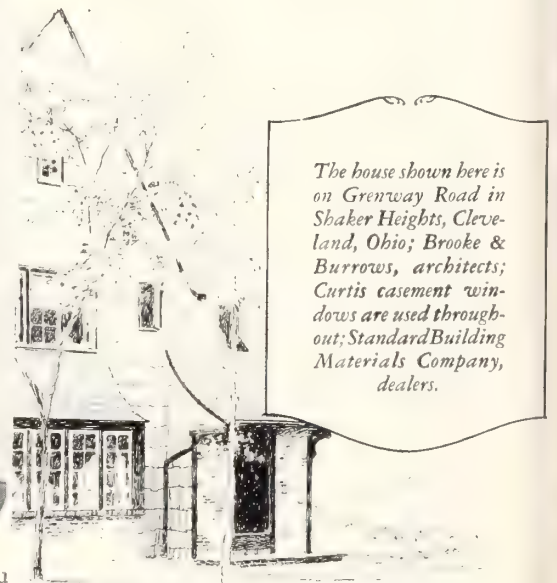 The house shown here is
on Grenway Road in
Shaker Heights, Cleve-
land, Ohio; Brooke &
Burrows, architects;
Curtis casement win-
dows are used through-
out; Standard Building
Materials Company,
dealers.